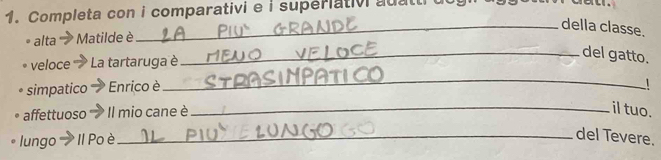 1. Completa con i comparativi e i superlativi adatti degli aggettivi dati.
• alta → Matilde è LA PIU' GRANDE della classe.
• veloce → La tartaruga è MENO VELOCE del gatto.
• simpatico → Enrico è STRASIMPATICO !
• affettuoso → Il mio cane è il tuo.
• lungo → Il Po è IL PIU' LUNGO del Tevere.